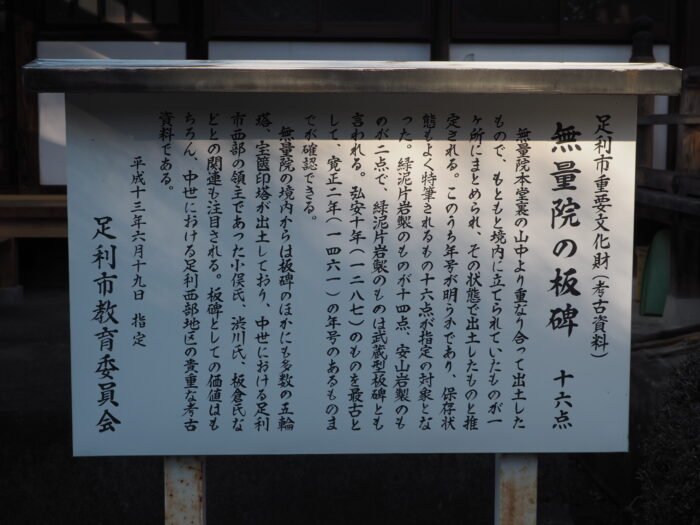 足利市重要文化財（考古資料）
無量院の板碑　十六点
無量院本堂裏の山中より重なり合って出土した
もので、もともと境内に立てられていたものが一
ヶ所にまとめられ、その状態で出土したものと推
定される。このうち年号が明らかであり、保存状
態もよく特筆されるもの十六点が指定の対象とな
った。緑泥片岩製のものが十四点、安山岩製のも
のが二点で、緑泥片岩製のものは武蔵型板碑とも
言われる。弘安十年（一二八七）のものを最古と
して、寛正二年（一四六一）の年号のあるものま
でが確認できる。
無量院の境内からは板碑のほかにも多数の五輪
塔、宝篋印塔が出土しており、中世における足利
市西部の領主であった小俣氏、渋川氏、板倉氏な
どとの関連も注目される。板碑としての価値はも
ちろん、中世における足利西部地区の貴重な考古
資料である。
平成十三年六月十九日　指定
足利市教育委員会